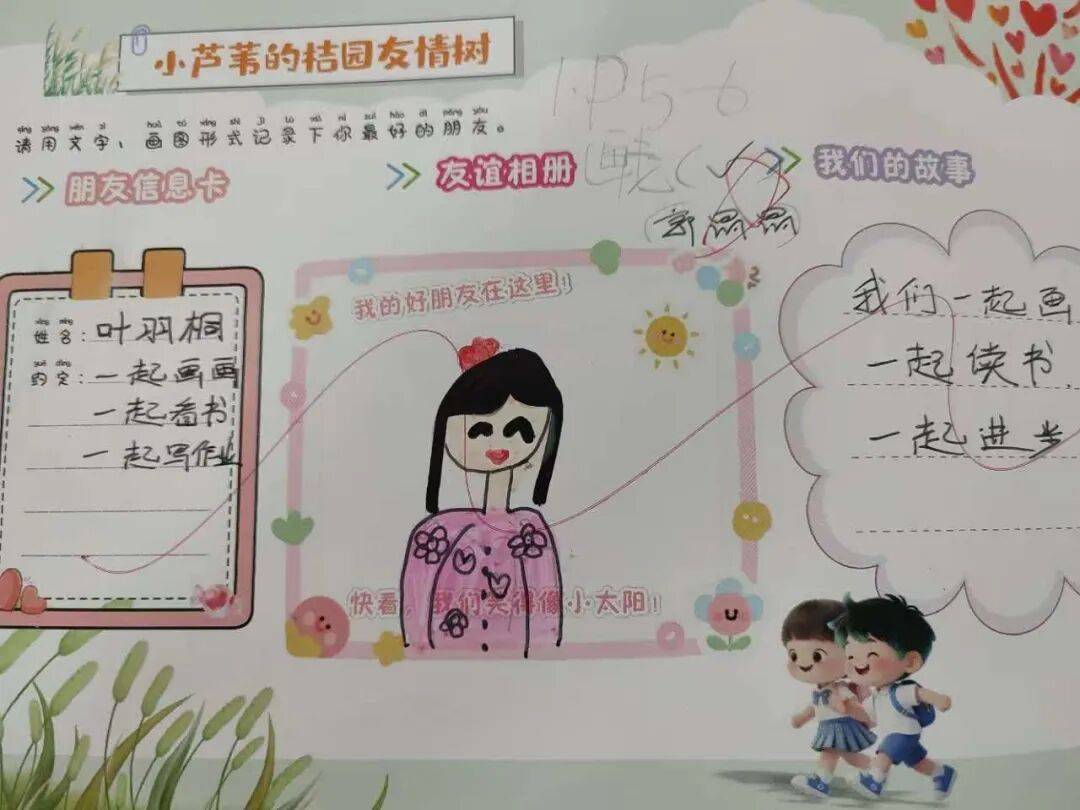 小芦苇的桔园友情树
1.P5-6
qǐng yòng wén zì huà tú xíng shì jì lù xià nǐ zuì hǎo de péng yǒu
请用文字、画图形式记录下你最好的朋友。
画完(✓)
朋友信息卡
友谊相册
我们的故事
姓名:叶羽桐
约定:一起画画
一起看书
一起写作业
我的好朋友在这里!
快看,我们笑得像小太阳!
我们一起画
一起读书
一起进步